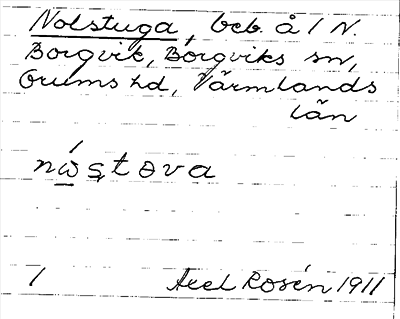 Nolstuga, beb. å 1 N.
Borgvik, Borgviks sn,
Grums hd, Värmlands
län
nώṣtəva
1 Axel Rosén 1911